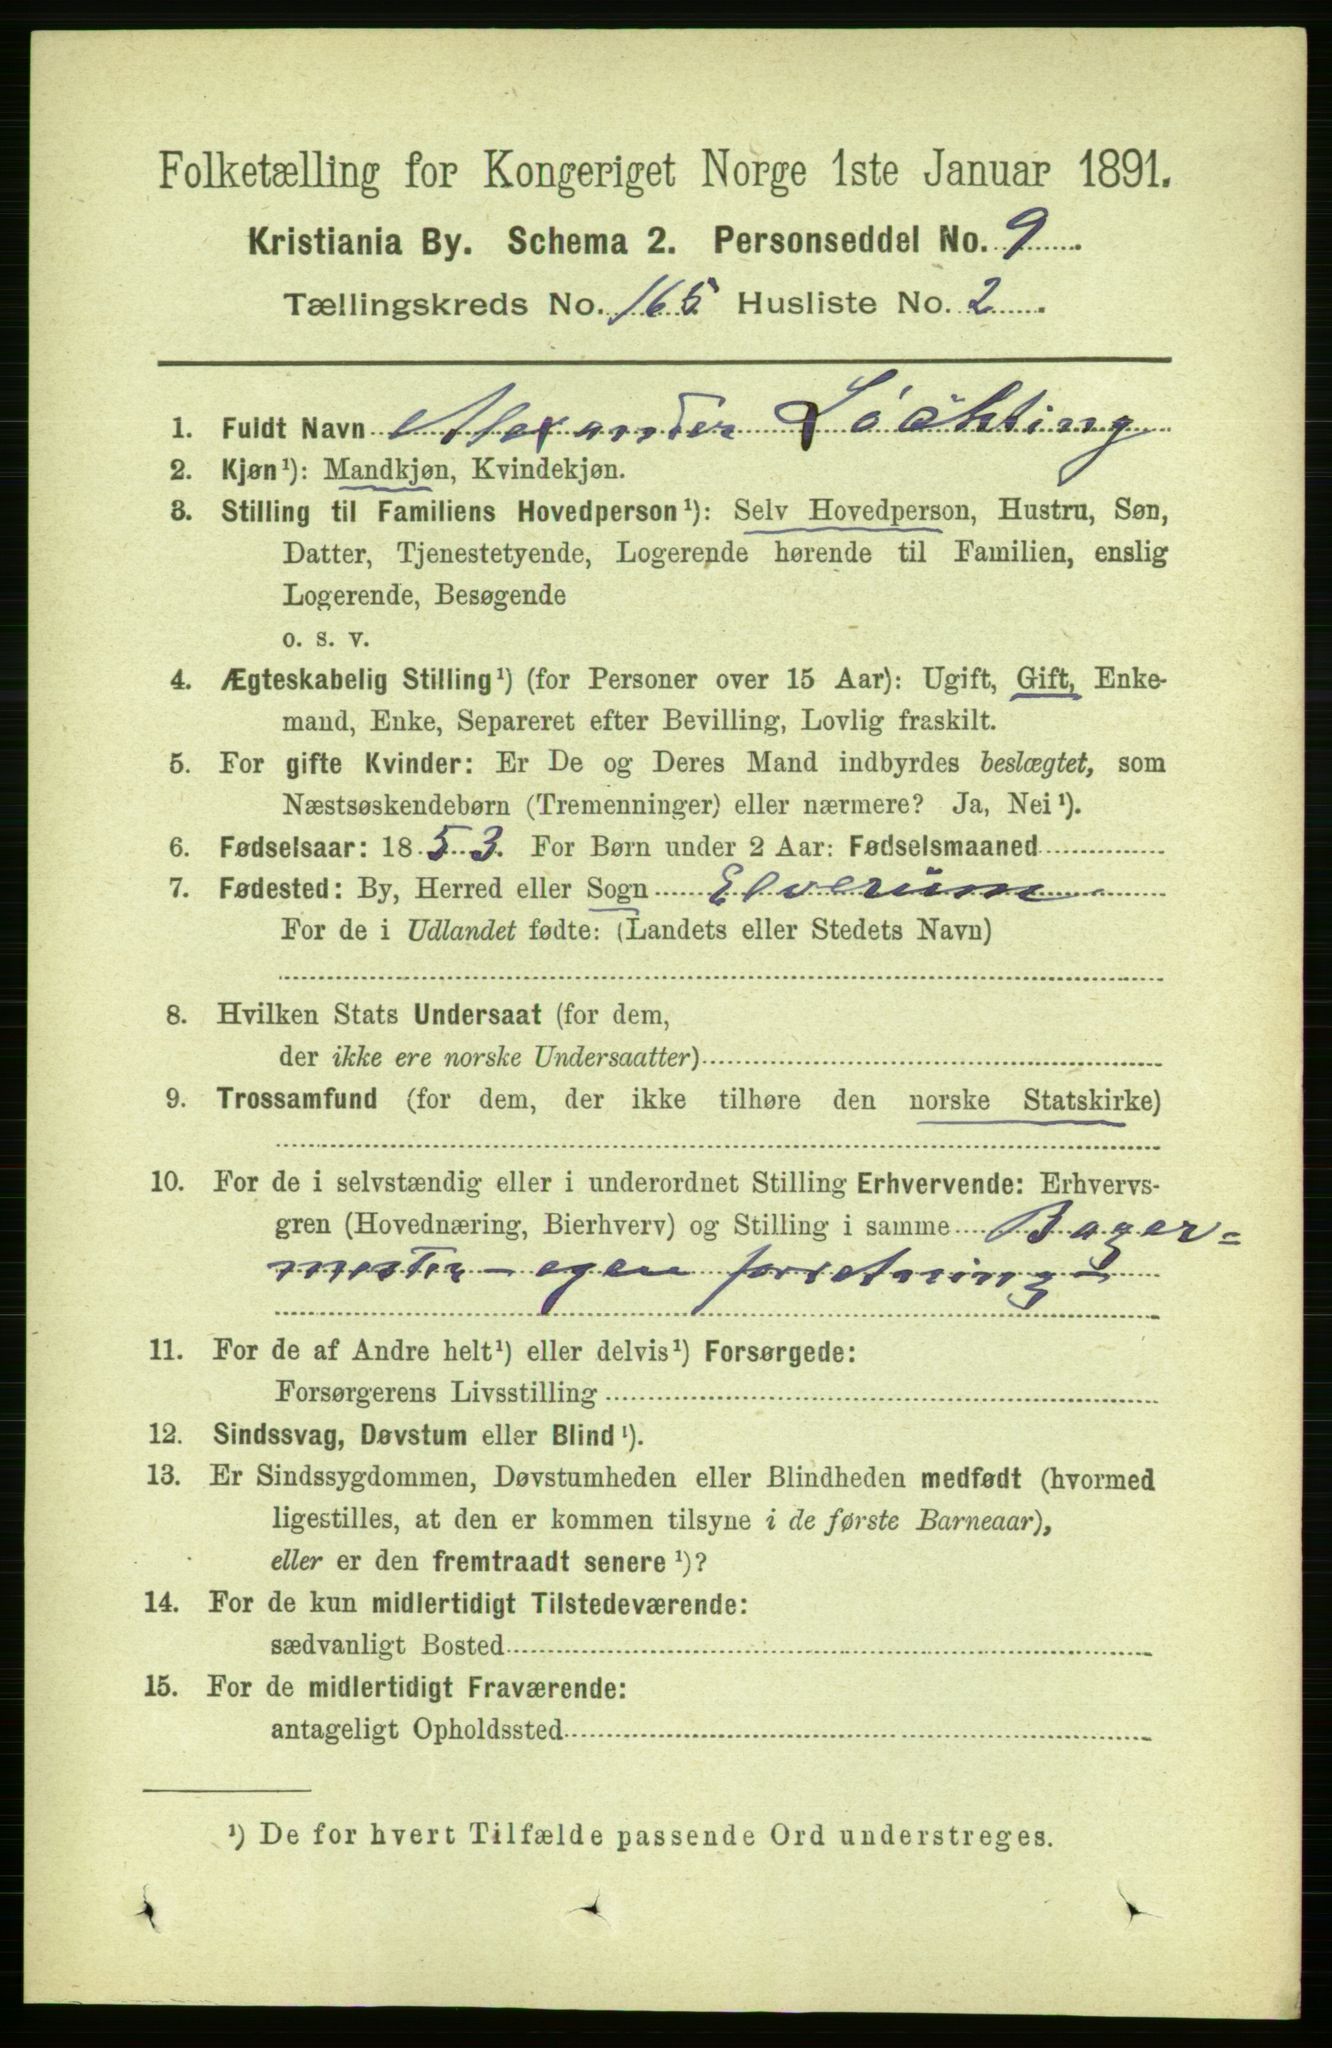 Folketælling for Kongeriget Norge 1ste Januar 1891.
Kristiania By. Schema 2. Personseddel No. 9.
Tællingskreds No. 165 Husliste No. 2.
1. Fuldt Navn Alexander
2. Kjøn¹): Mandkjøn, Kvindekjøn.
3. Stilling til Familiens Hovedperson¹): Selv Hovedperson, Hustru, Søn,
Datter, Tjenestetyende, Logerende hørende til Familien, enslig
Logerende, Besøgende
o. s. v.
4. Ægteskabelig Stilling¹) (for Personer over 15 Aar): Ugift, Gift, Enke-
mand, Enke, Separeret efter Bevilling, Lovlig fraskilt.
5. For gifte Kvinder: Er De og Deres Mand indbyrdes beslægtet, som
Næstsøskendebørn (Tremenninger) eller nærmere? Ja, Nei¹).
6. Fødselsaar: 1853. For Børn under 2 Aar: Fødselsmaaned
7. Fødested: By, Herred eller Sogn Elverum
For de i Udlandet fødte: (Landets eller Stedets Navn)
8. Hvilken Stats Undersaat (for dem,
der ikke ere norske Undersaatter)
9. Trossamfund (for dem, der ikke tilhøre den norske Statskirke)
10. For de i selvstændig eller i underordnet Stilling Erhvervende: Erhvervs-
gren (Hovednæring, Bierhverv) og Stilling i samme Bager=
mester – egen forretning –
11. For de af Andre helt¹) eller delvis¹) Forsørgede:
Forsørgerens Livsstilling
12. Sindssvag, Døvstum eller Blind¹).
13. Er Sindssygdommen, Døvstumheden eller Blindheden medfødt (hvormed
ligestilles, at den er kommen tilsyne i de første Barneaar),
eller er den fremtraadt senere¹)?
14. For de kun midlertidigt Tilstedeværende:
sædvanligt Bosted
15. For de midlertidigt Fraværende:
antageligt Opholdssted
¹) De for hvert Tilfælde passende Ord understreges.